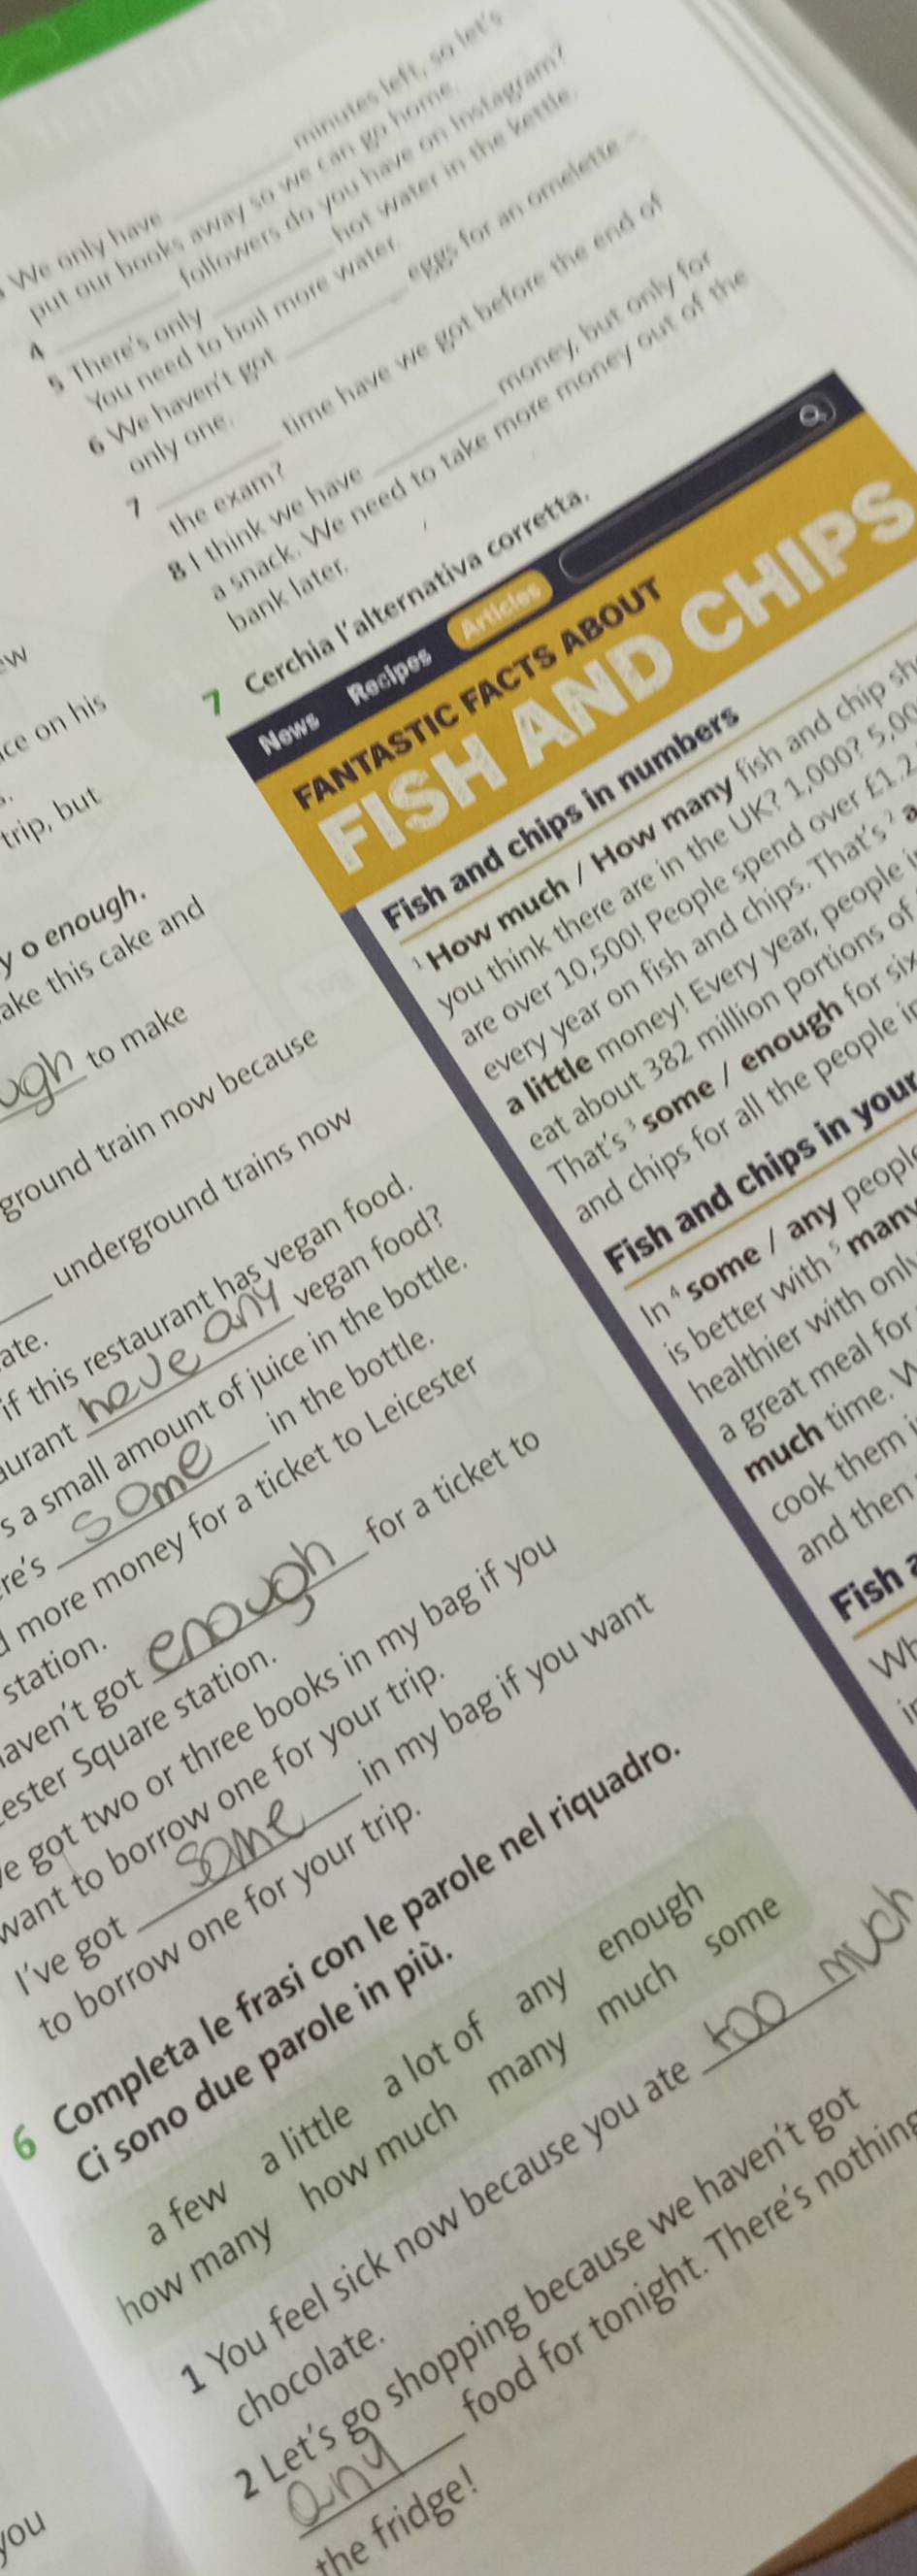 We only have ________ minutes left, so let's
put our books away so we can go home.
4 ________ followers do you have on Instagram?
5 There's only ________ hot water in the kettle.
You need to boil more water.
6 We haven't got ________ eggs for an omelette –
only one.
7 ________ time have we got before the end of
the exam?
8 I think we have ________ money, but only for
a snack. We need to take more money out of the
bank later.
7 Cerchia l'alternativa corretta.
News Recipes Articles
FANTASTIC FACTS ABOUT
FISH AND CHIPS
Fish and chips in numbers
1 How much / How many fish and chip
you think there are in the UK? 1,000?
are over 10,500! People spend over
every year on fish and chips. That's 2
a little money! Every year, people
eat about 382 million portions of
That's 3 some / enough for six
and chips for all the people
Fish and chips in your
In 4 some / any
is better with 5 many
healthier with only
a great meal for
much time.
cook them
and then
Fish
on his
trip, but
y o enough.
this cake and
to make
ground train now because
________ underground trains now
if this restaurant has vegan food.
have any vegan food?
a small amount of juice in the bottle.
some in the bottle.
more money for a ticket to Leicester
station.
got enough for a ticket to
Square station.
got two or three books in my bag if you
want to borrow one for your trip.
I've got some in my bag if you want
to borrow one for your trip.
6 Completa le frasi con le parole nel riquadro.
Ci sono due parole in più.
a few a little a lot of any enough
how many how much many much some
1 You feel sick now because you ate too much
chocolate.
2 Let's go shopping because we haven't got
any food for tonight. There's nothing
the fridge!
you